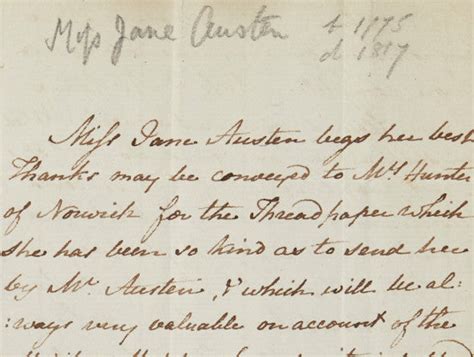 Miss Jane Austen b 1775
d 1817
Miss Jane Austen begs her best
Thanks may be conveyed to Mrs Hunter
of Norwich for the Threadpaper which
she has been so kind as to send her
by Mr. Austen, & which will be al-
:ways very valuable on account of the